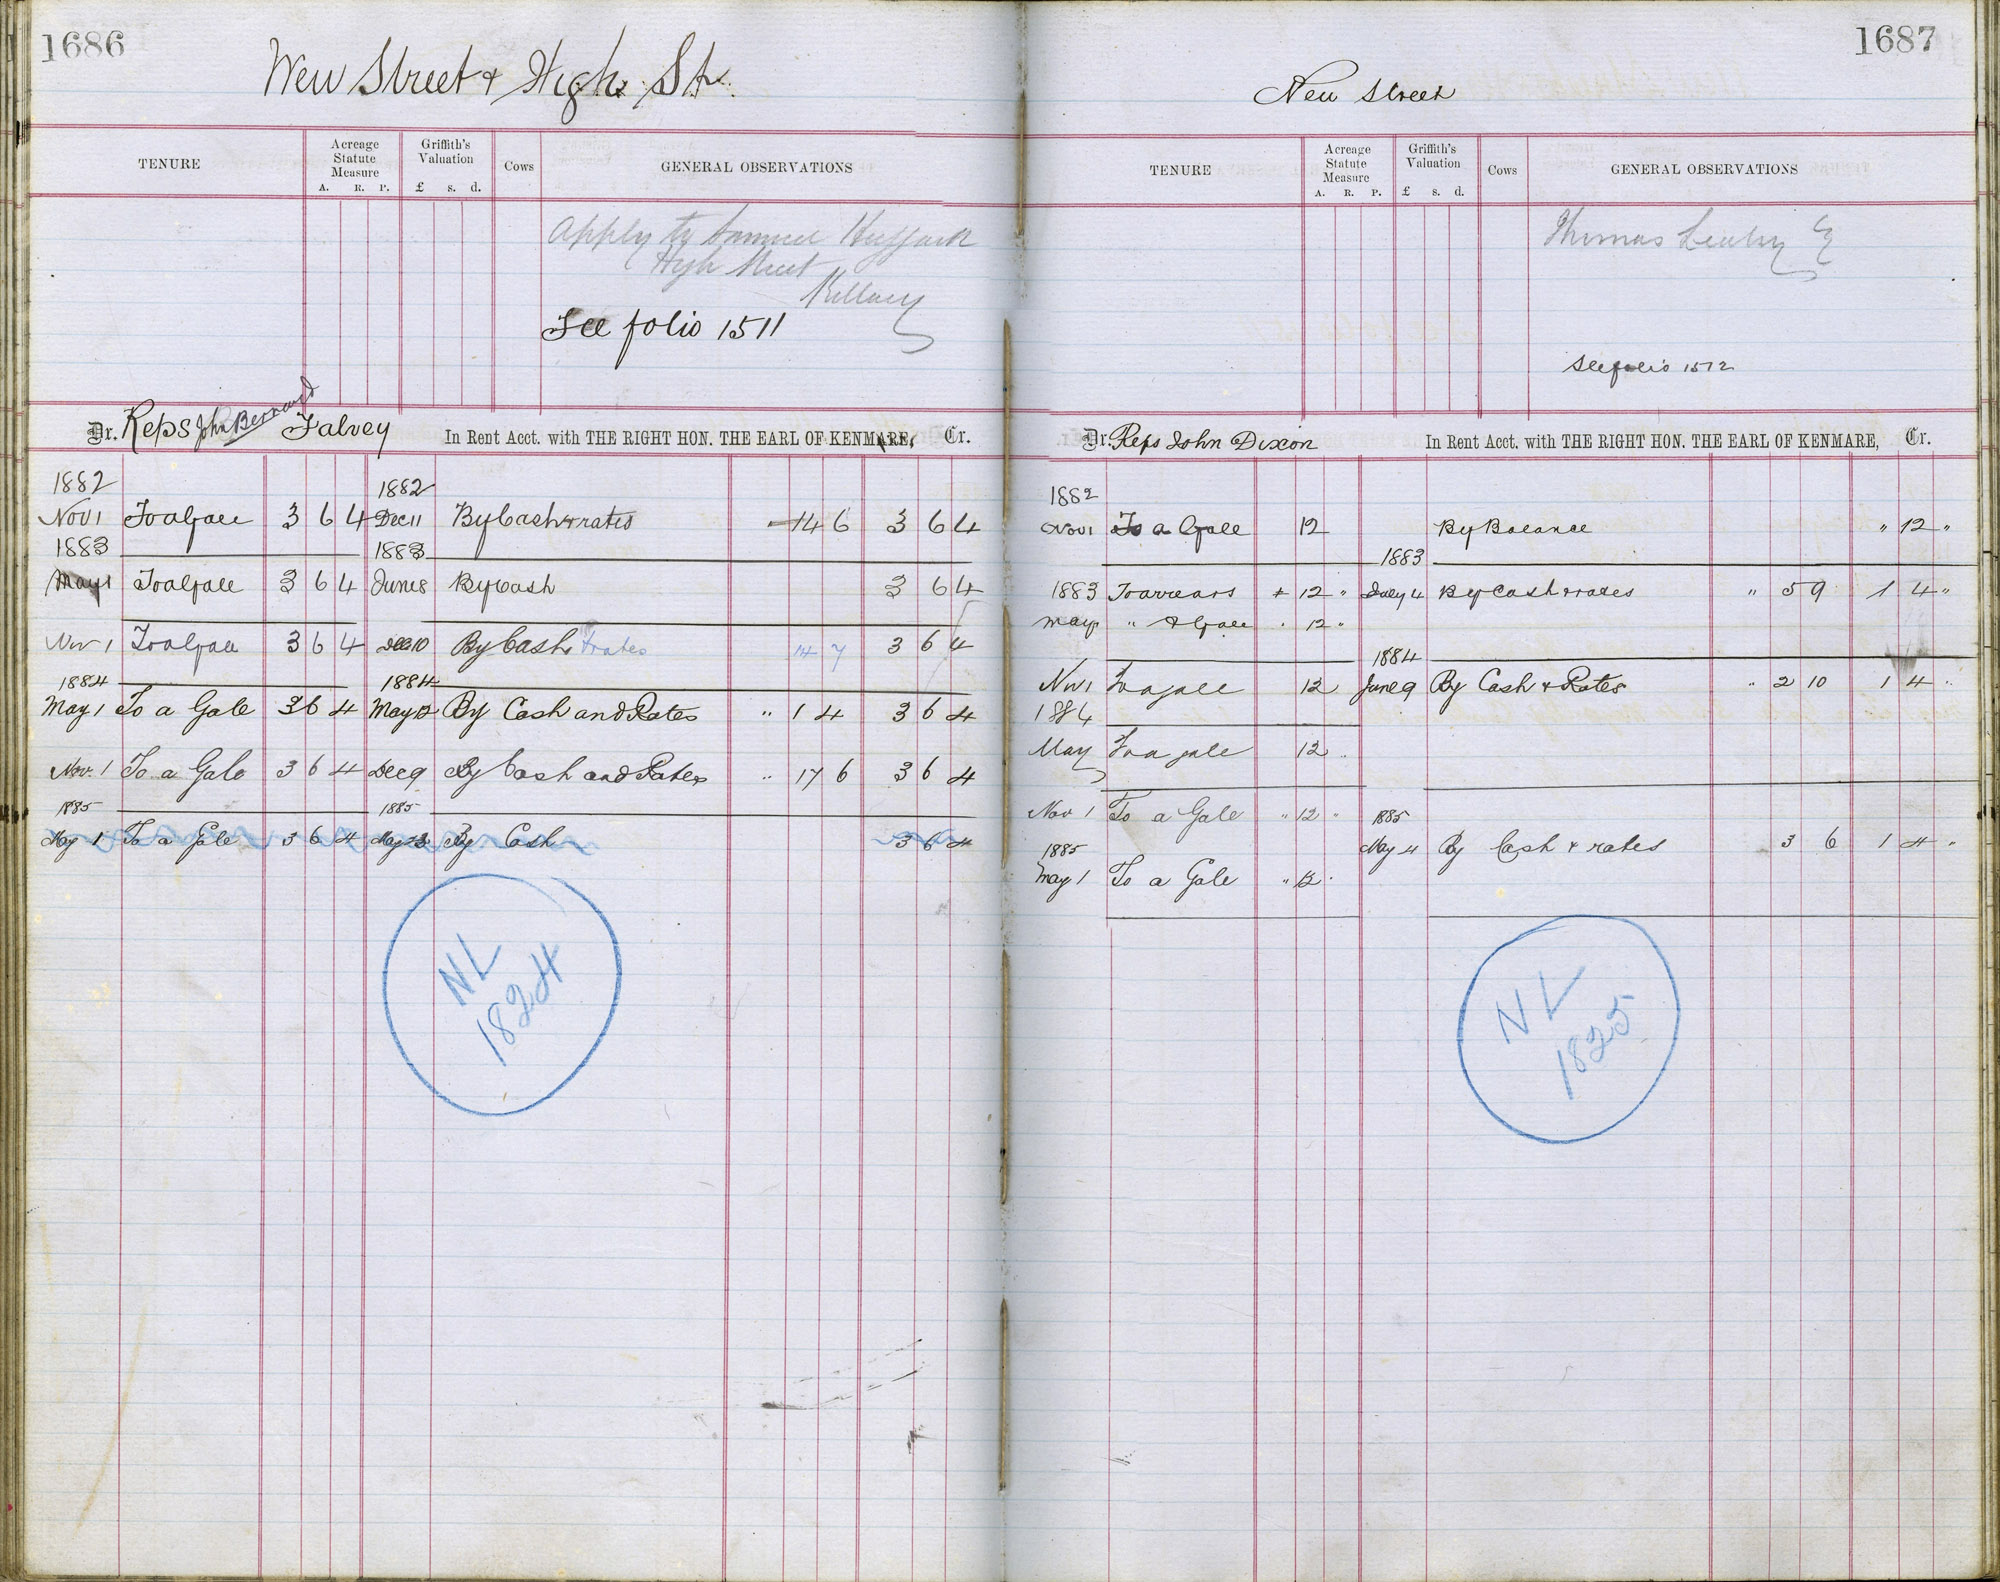 1686
New Street & High St.
TENURE Acreage Statute Measure A. R. P. Griffith's Valuation £ s. d. Cows GENERAL OBSERVATIONS
Apply to Samuel
High Street
See folio 1511
Dr. Reps John Bernard Falvey In Rent Acct. with THE RIGHT HON. THE EARL OF KENMARE, Cr.
1882 1882
Nov 1 To a Gale 3 6 4 Dec 11 By Cash & rates 14 6 3 6 4
1883 1883
May 1 To a Gale 3 6 4 June 8 By Cash 3 6 4
Nov 1 To a Gale 3 6 4 Dec 10 By Cash & rates 14 7 3 6 4
1884 1884
May 1 To a Gale 3 6 4 May 12 By Cash and Rates " 1 4 3 6 4
Nov. 1 To a Gale 3 6 4 Dec 9 By Cash and Rates " 17 6 3 6 4
1885 1885
May 1 To a Gale 3 6 4 May 23 By Cash 3 6 4
NL
1824
1687
New Street
TENURE Acreage Statute Measure A. R. P. Griffith's Valuation £ s. d. Cows GENERAL OBSERVATIONS
Thomas
See folio 1512
Dr. Reps John Dixon In Rent Acct. with THE RIGHT HON. THE EARL OF KENMARE, Cr.
1882
Nov 1 To a Gale 12 By Balance " 12 "
1883
1883 To arrears " 12 " July 4 By Cash & rates " 5 9 1 4 "
May " a Gale " 12 "
1884
Nov 1 To a gale 12 June 9 By Cash & Rates " 2 10 1 4 "
1884
May To a gale 12 "
Nov 1 To a Gale " 12 " 1885
1885 May 4 By Cash & rates 3 6 1 4 "
May 1 To a Gale " 12 "
NL
1825